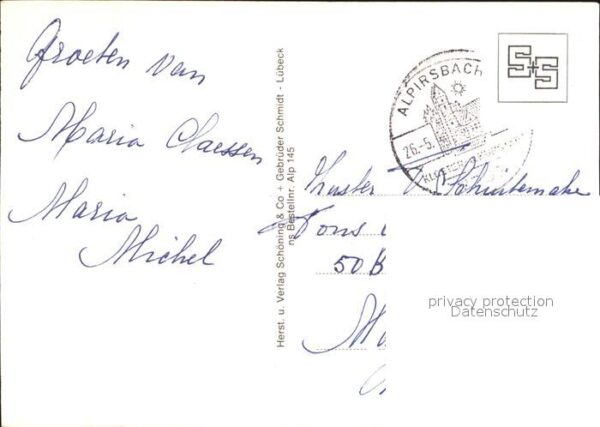 Groeten van
Maria Claessen
Maria
Michel
Herst. u. Verlag Schöning & Co + Gebrüder Schmidt - Lübeck
Bestellnr. Alp 145
ALPIRSBACH
26.-5.
KLOSTER
S+S
Zuster
Fons
50 B
privacy protection
Datenschutz